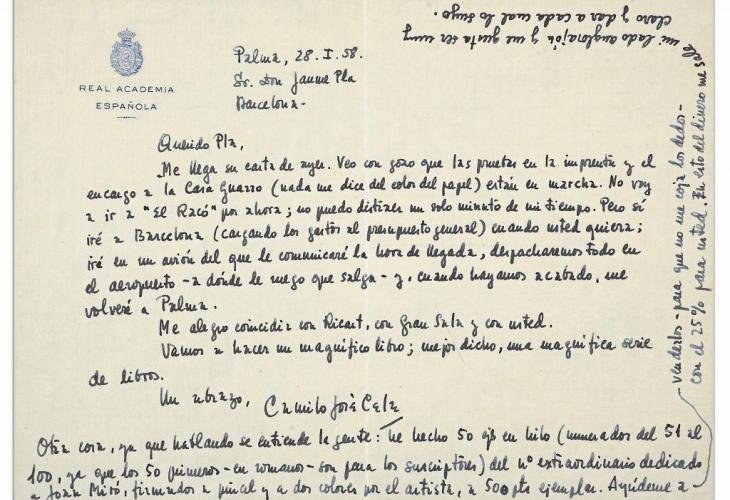 REAL ACADEMIA
ESPAÑOLA
Palma, 28. I. 58.
Sr. Don Jaume Pla
Barcelona.-
Querido Pla,
Me llega su carta de ayer. Veo con gozo que las pruebas en la imprenta y el
encargo a la Casa Guarro (nada me dice del color del papel) están en marcha. No voy
a ir a "El Racó" por ahora; no puedo distraer un solo minuto de mi tiempo. Pero sí
iré a Barcelona (cargando los gastos al presupuesto general) cuando usted quiera;
iré en un avión del que le comunicaré la hora de llegada, despacharemos todo en
el aeropuerto -a dónde le ruego que salga- y, cuando hayamos acabado, me
volveré a Palma.
Me alegro coincidir con Ricart, con Gran Sala y con usted.
Vamos a hacer un magnífico libro; mejor dicho, una magnífica serie
de libros.
Un abrazo, Camilo José Cela
Otra cosa, ya que hablando se entiende la gente: he hecho 50 ejs en hilo (numerados del 51 al
100, ya que los 50 primeros -en romanos- son para los suscriptores) del nº extraordinario dedicado
a Joan Miró, firmados a pincel y a dos colores por el artista, a 500 pts ejemplar. Ayúdeme a
venderlos -para que no me coja los dedos-
con el 25% para usted. En esto del dinero me sale
mi lado anglosajón y me gusta ser muy
claro y dar a cada cual lo suyo.